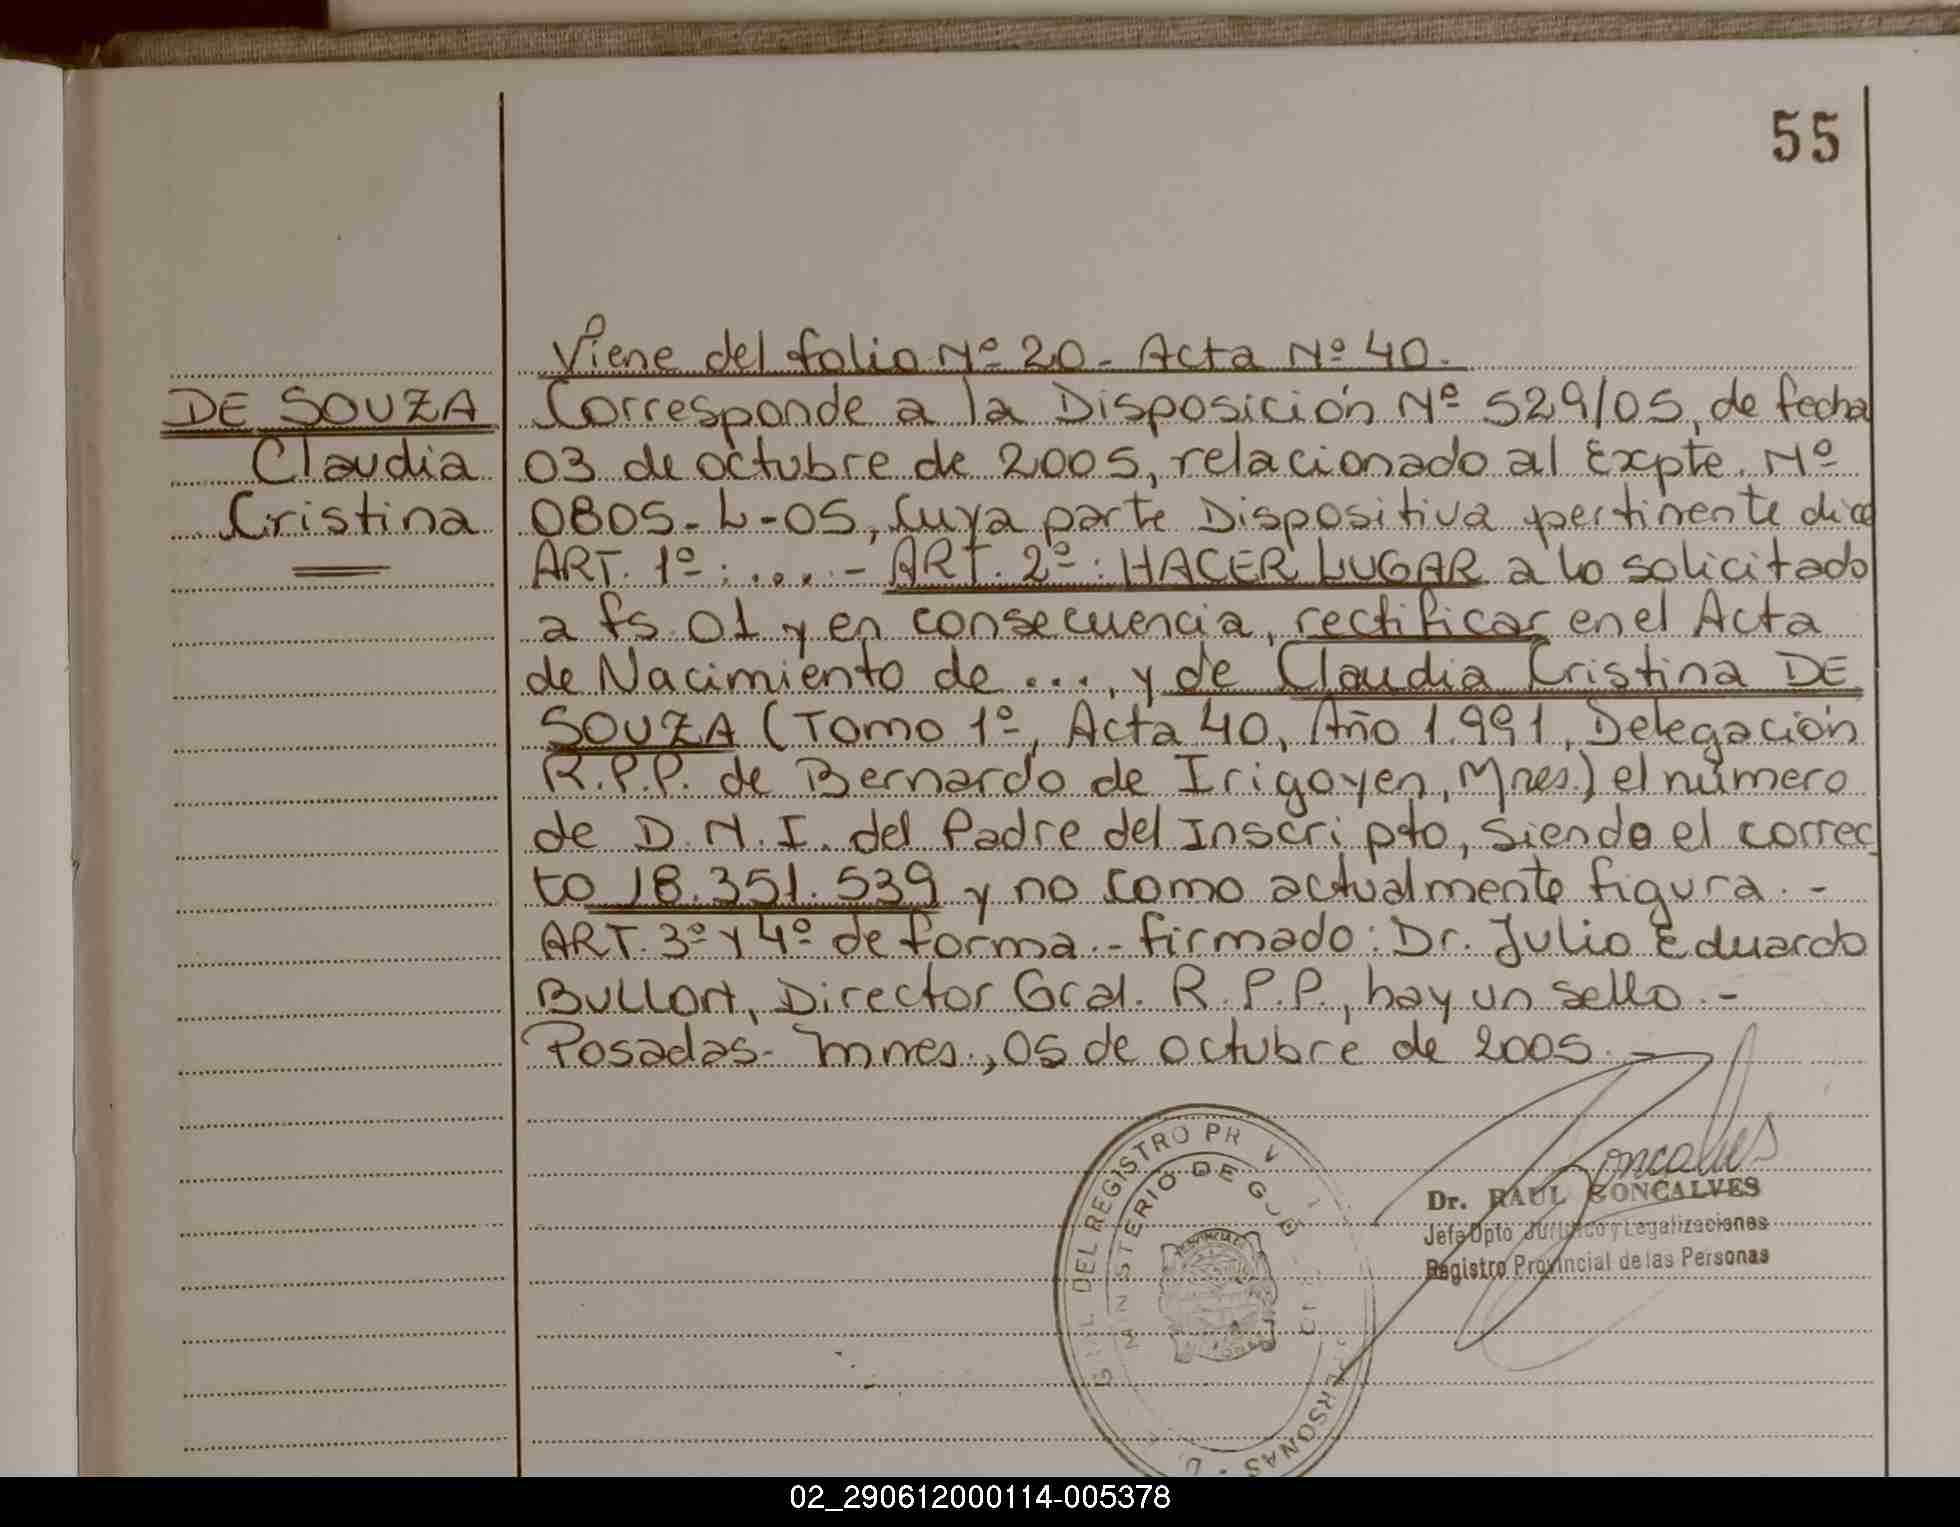 55
Viene del folio Nº 20 - Acta Nº 40.
DE SOUZA
Claudia
Cristina
Corresponde a la Disposición Nº 529/05, de fecha
03 de octubre de 2005, relacionado al Expte. Nº
0805-L-05, Cuya parte Dispositiva pertinente dice
ART. 1º: .... - ART. 2º: HACER LUGAR a lo solicitado
a fs. 01 y en consecuencia, rectificar en el Acta
de Nacimiento de ..., y de Claudia Cristina DE
SOUZA (Tomo 1º, Acta 40, Año 1.991, Delegación
R.P.P. de Bernardo de Irigoyen, Mnes.) el número
de D.N.I. del Padre del Inscripto, siendo el correc
to 18.351.539 y no como actualmente figura. -
ART. 3º y 4º de forma. - firmado: Dr. Julio Eduardo
Bullort, Director Gral. R.P.P., hay un sello. -
Posadas - Mnes., 05 de octubre de 2005. -
DEL REGISTRO
MINISTERIO DE
PERSONAS
Goncalves
Dr. RAUL GONCALVES
Jefe Dpto Jurídico y Legalizaciones
Registro Provincial de las Personas
02_290612000114-005378